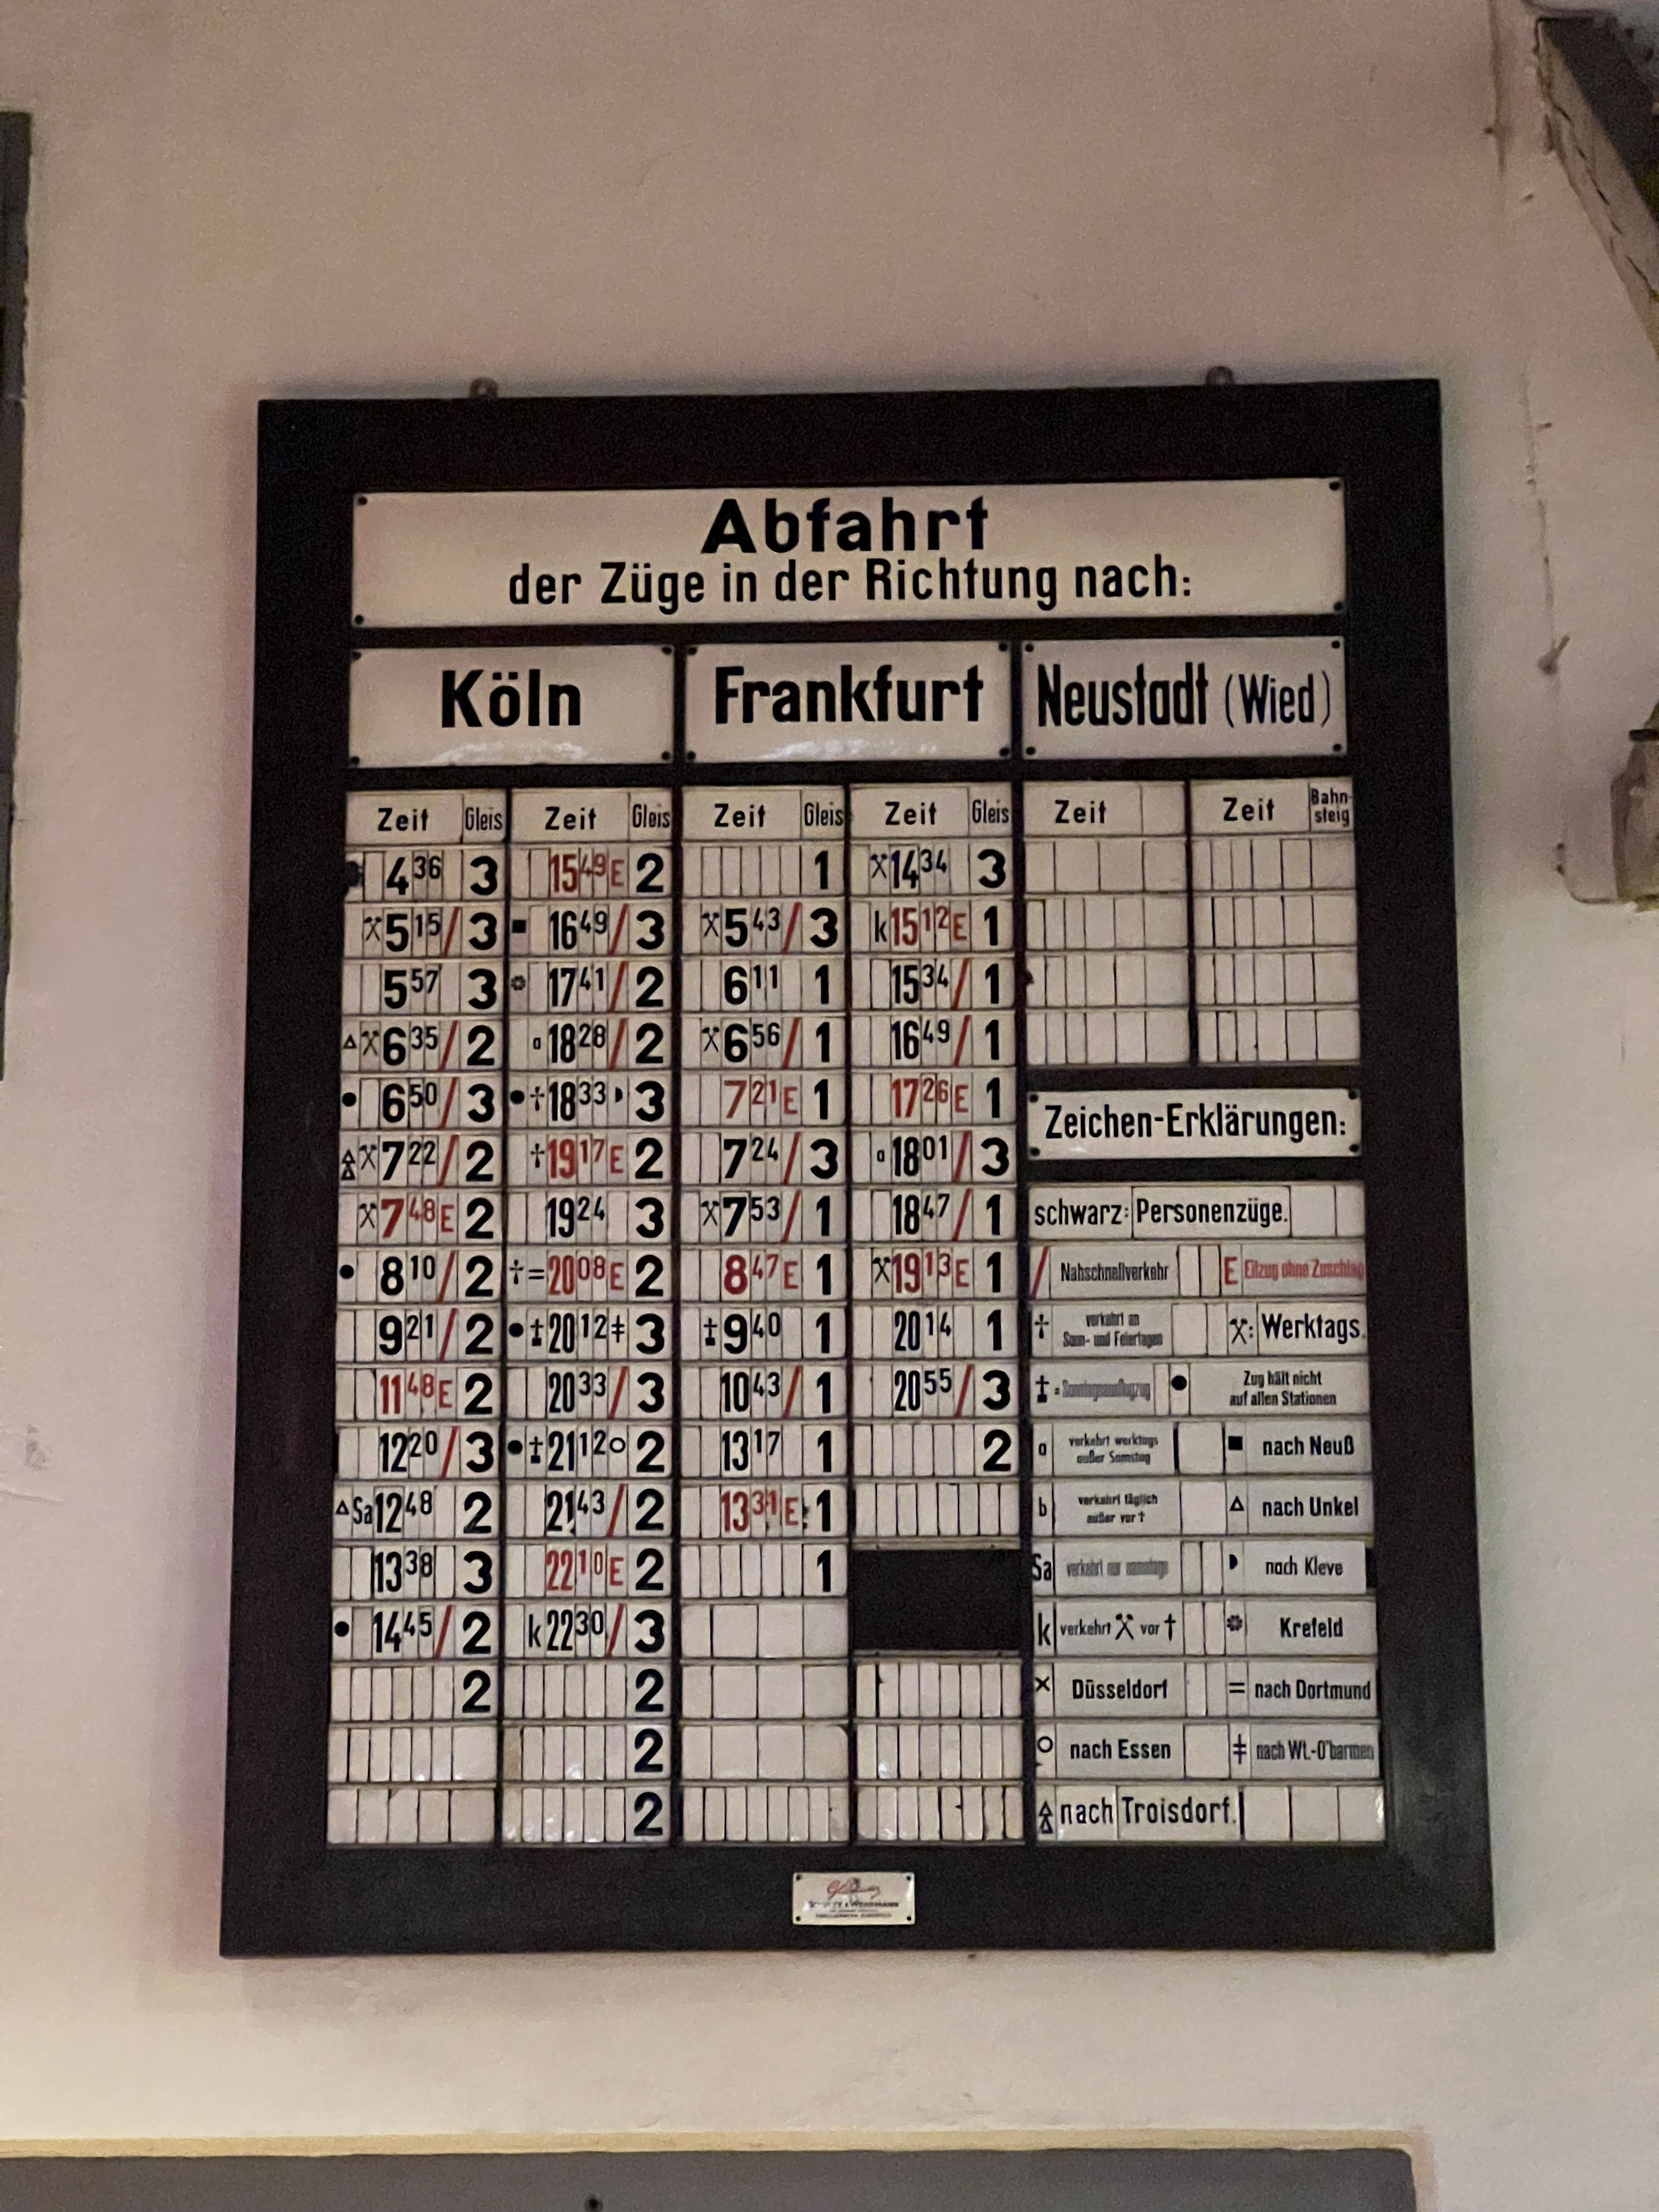 Abfahrt
der Züge in der Richtung nach:
Köln Frankfurt Neustadt (Wied)
Zeit Gleis Zeit Gleis Zeit Gleis Zeit Gleis Zeit Zeit Bahn-
steig
4 36 3 15 49 E 2 1 ⚒ 14 34 3
⚒ 5 15 / 3 ■ 16 49 / 3 ⚒ 5 43 / 3 k 15 12 E 1
5 57 3 17 41 / 2 6 11 1 15 34 / 1
△ ⚒ 6 35 / 2 a 18 28 / 2 ⚒ 6 56 / 1 16 49 / 1
● 6 50 / 3 ● † 18 33 ◗ 3 7 21 E 1 17 26 E 1
⚒ 7 22 / 2 † 19 17 E 2 7 24 / 3 a 18 01 / 3
⚒ 7 48 E 2 19 24 3 ⚒ 7 53 / 1 18 47 / 1
● 8 10 / 2 † = 20 08 E 2 8 47 E 1 ⚒ 19 13 E 1
9 21 / 2 ● ‡ 20 12 ‡ 3 ‡ 9 40 1 20 14 1
11 48 E 2 20 33 / 3 10 43 / 1 20 55 / 3
12 20 / 3 ● ‡ 21 12 ○ 2 13 17 1 2
△ Sa 12 48 2 21 43 / 2 13 31 E 1
13 38 3 22 10 E 2 1
● 14 45 / 2 k 22 30 / 3
2 2
2
2
Zeichen-Erklärungen:
schwarz: Personenzüge.
/ Nahschnellverkehr E Eilzug ohne Zuschlag
† verkehrt an
Sonn- und Feiertagen ⚒: Werktags.
‡ = Sonntagsausflugzug ● Zug hält nicht
auf allen Stationen
a verkehrt werktags
außer Samstag ■ nach Neuß
b verkehrt täglich
außer vor † △ nach Unkel
Sa verkehrt nur samstags ◗ nach Kleve
k verkehrt ⚒ vor † Krefeld
× Düsseldorf = nach Dortmund
○ nach Essen ‡ nach Wt.-O'barmen
nach Troisdorf.